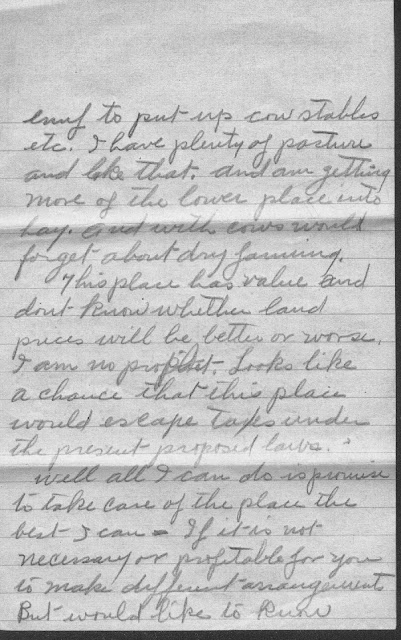 enuf to put up cow stables
etc. I have plenty of pasture
and like that. and am getting
more of the lower place into
hay. and with cows would
forget about dry farming.
This place has value and
dont know whether land
prices will be better or worse.
I am no prophet. Looks like
a chance that this place
would escape taxes under
the present proposed laws.
Well all I can do is promise
to take care of the place the
best I can - If it is not
necessary or profitable for you
to make different arrangements
But would like to know